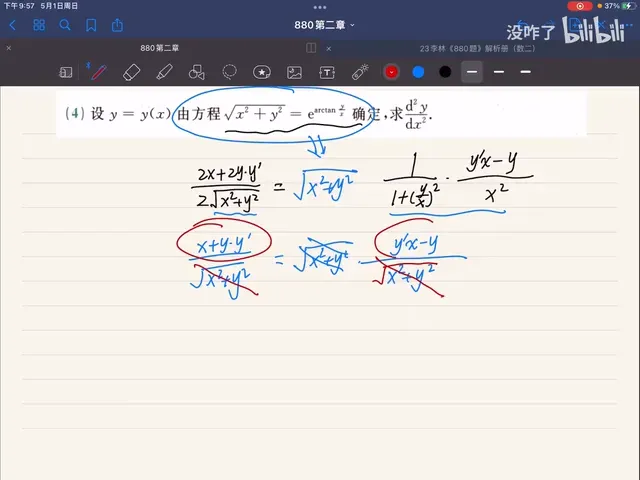 下午9:57 5月1日周日
37%
880 第二章
没咋了 bilibili
880 第二章
23李林《880题》解析册（数二）
(4) 设 y = y(x) 由方程 √(x² + y²) = e^(arctan y/x) 确定,求 d²y/dx².
(2x+2y·y')/(2√(x²+y²)) = √(x²+y²) 1/(1+(y/x)²) · (y'x-y)/x²
(x+y·y')/√(x²+y²) = √(x²+y²) · (y'x-y)/√(x²+y²)